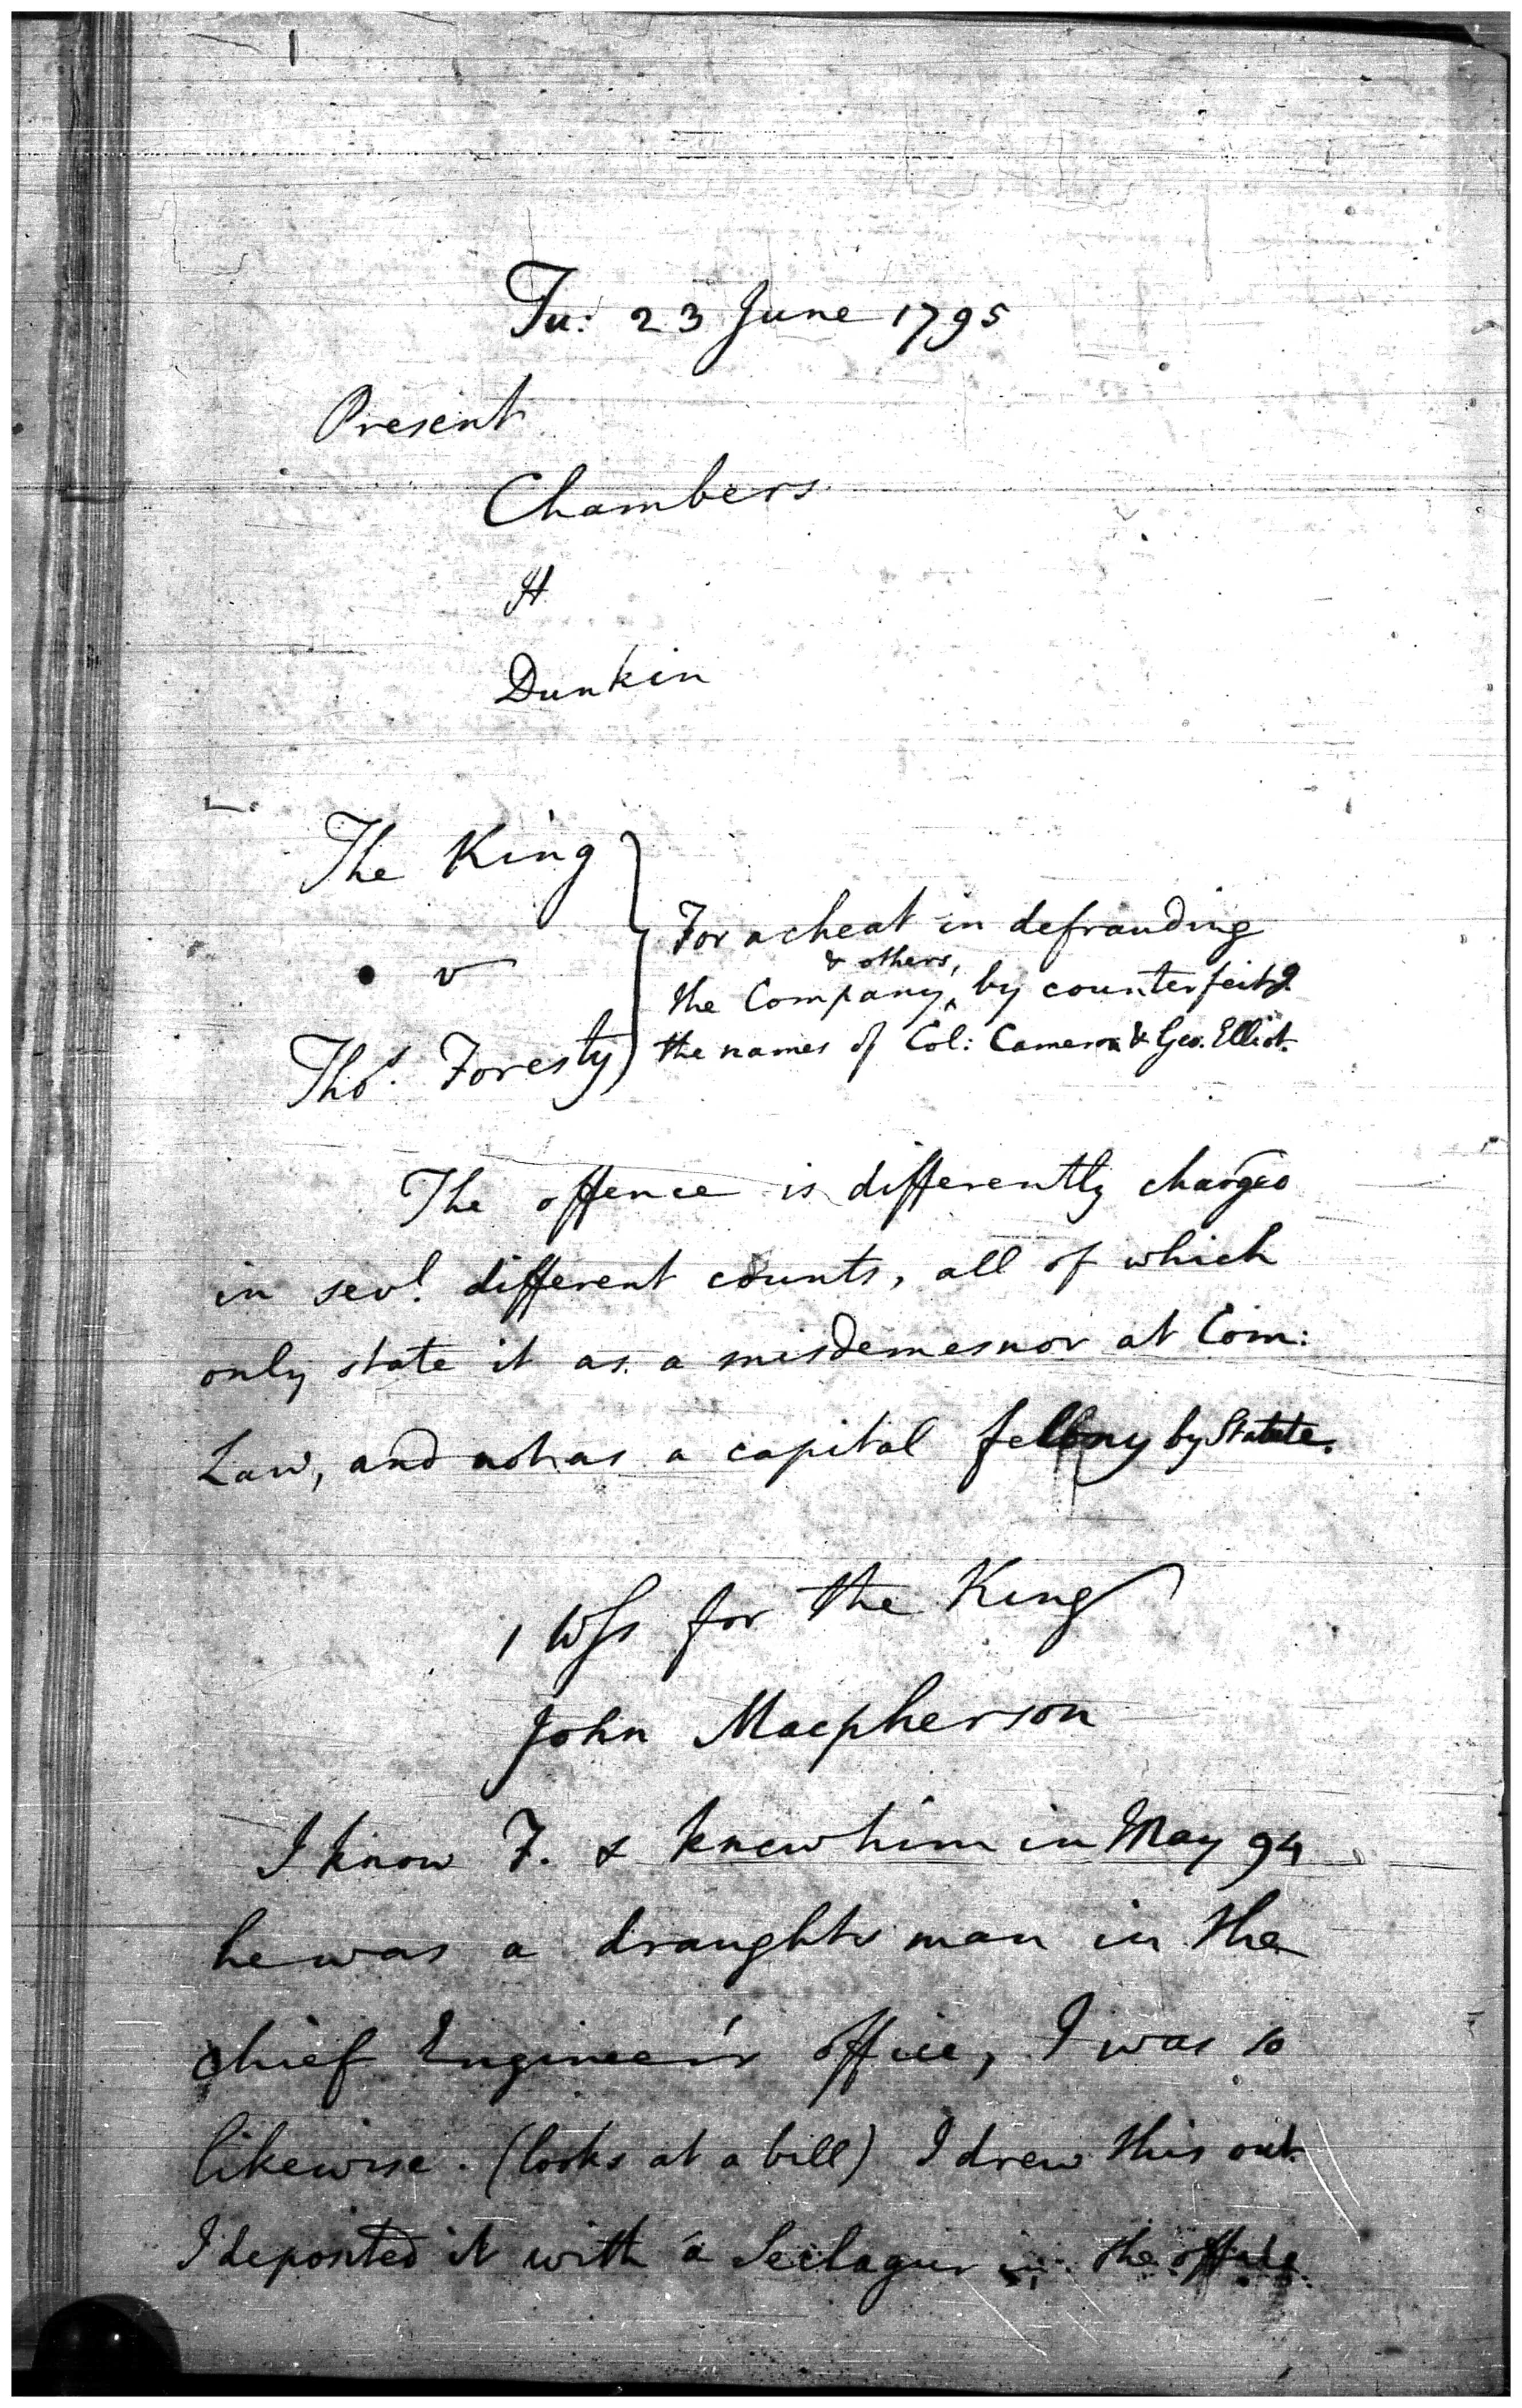 Tu: 23 June 1795
Present
Chambers
H
Dunkin
The King
v
Thos. Foresty
For a cheat in defrauding
& others,
the Company, by counterfeitg.
the names of Col: Cameron & Geo. Elliot.
The offence is differently charged
in sevl. different counts, all of which
only state it as a misdemesnor at Com:
Law, and not as a capital fellony by Statute.
1 Wss for the King
John Macpherson
I know F. & knew him in May 94
he was a draughts man in the
chief Engineer's office, I was so
likewise. (looks at a bill) I drew this out.
I deposited it with a in the office.